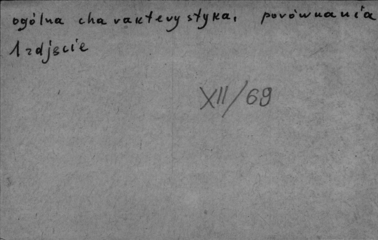 ogólna charakterystyka, porównania
1 zdjęcie
XII/69